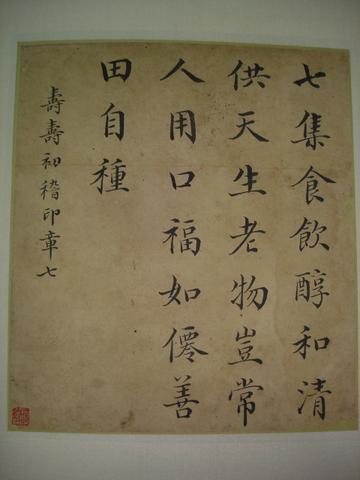 七集食飲醇和清
供天生老物豈常
人用口福如僊善
田自種
壽壽初稽印章七